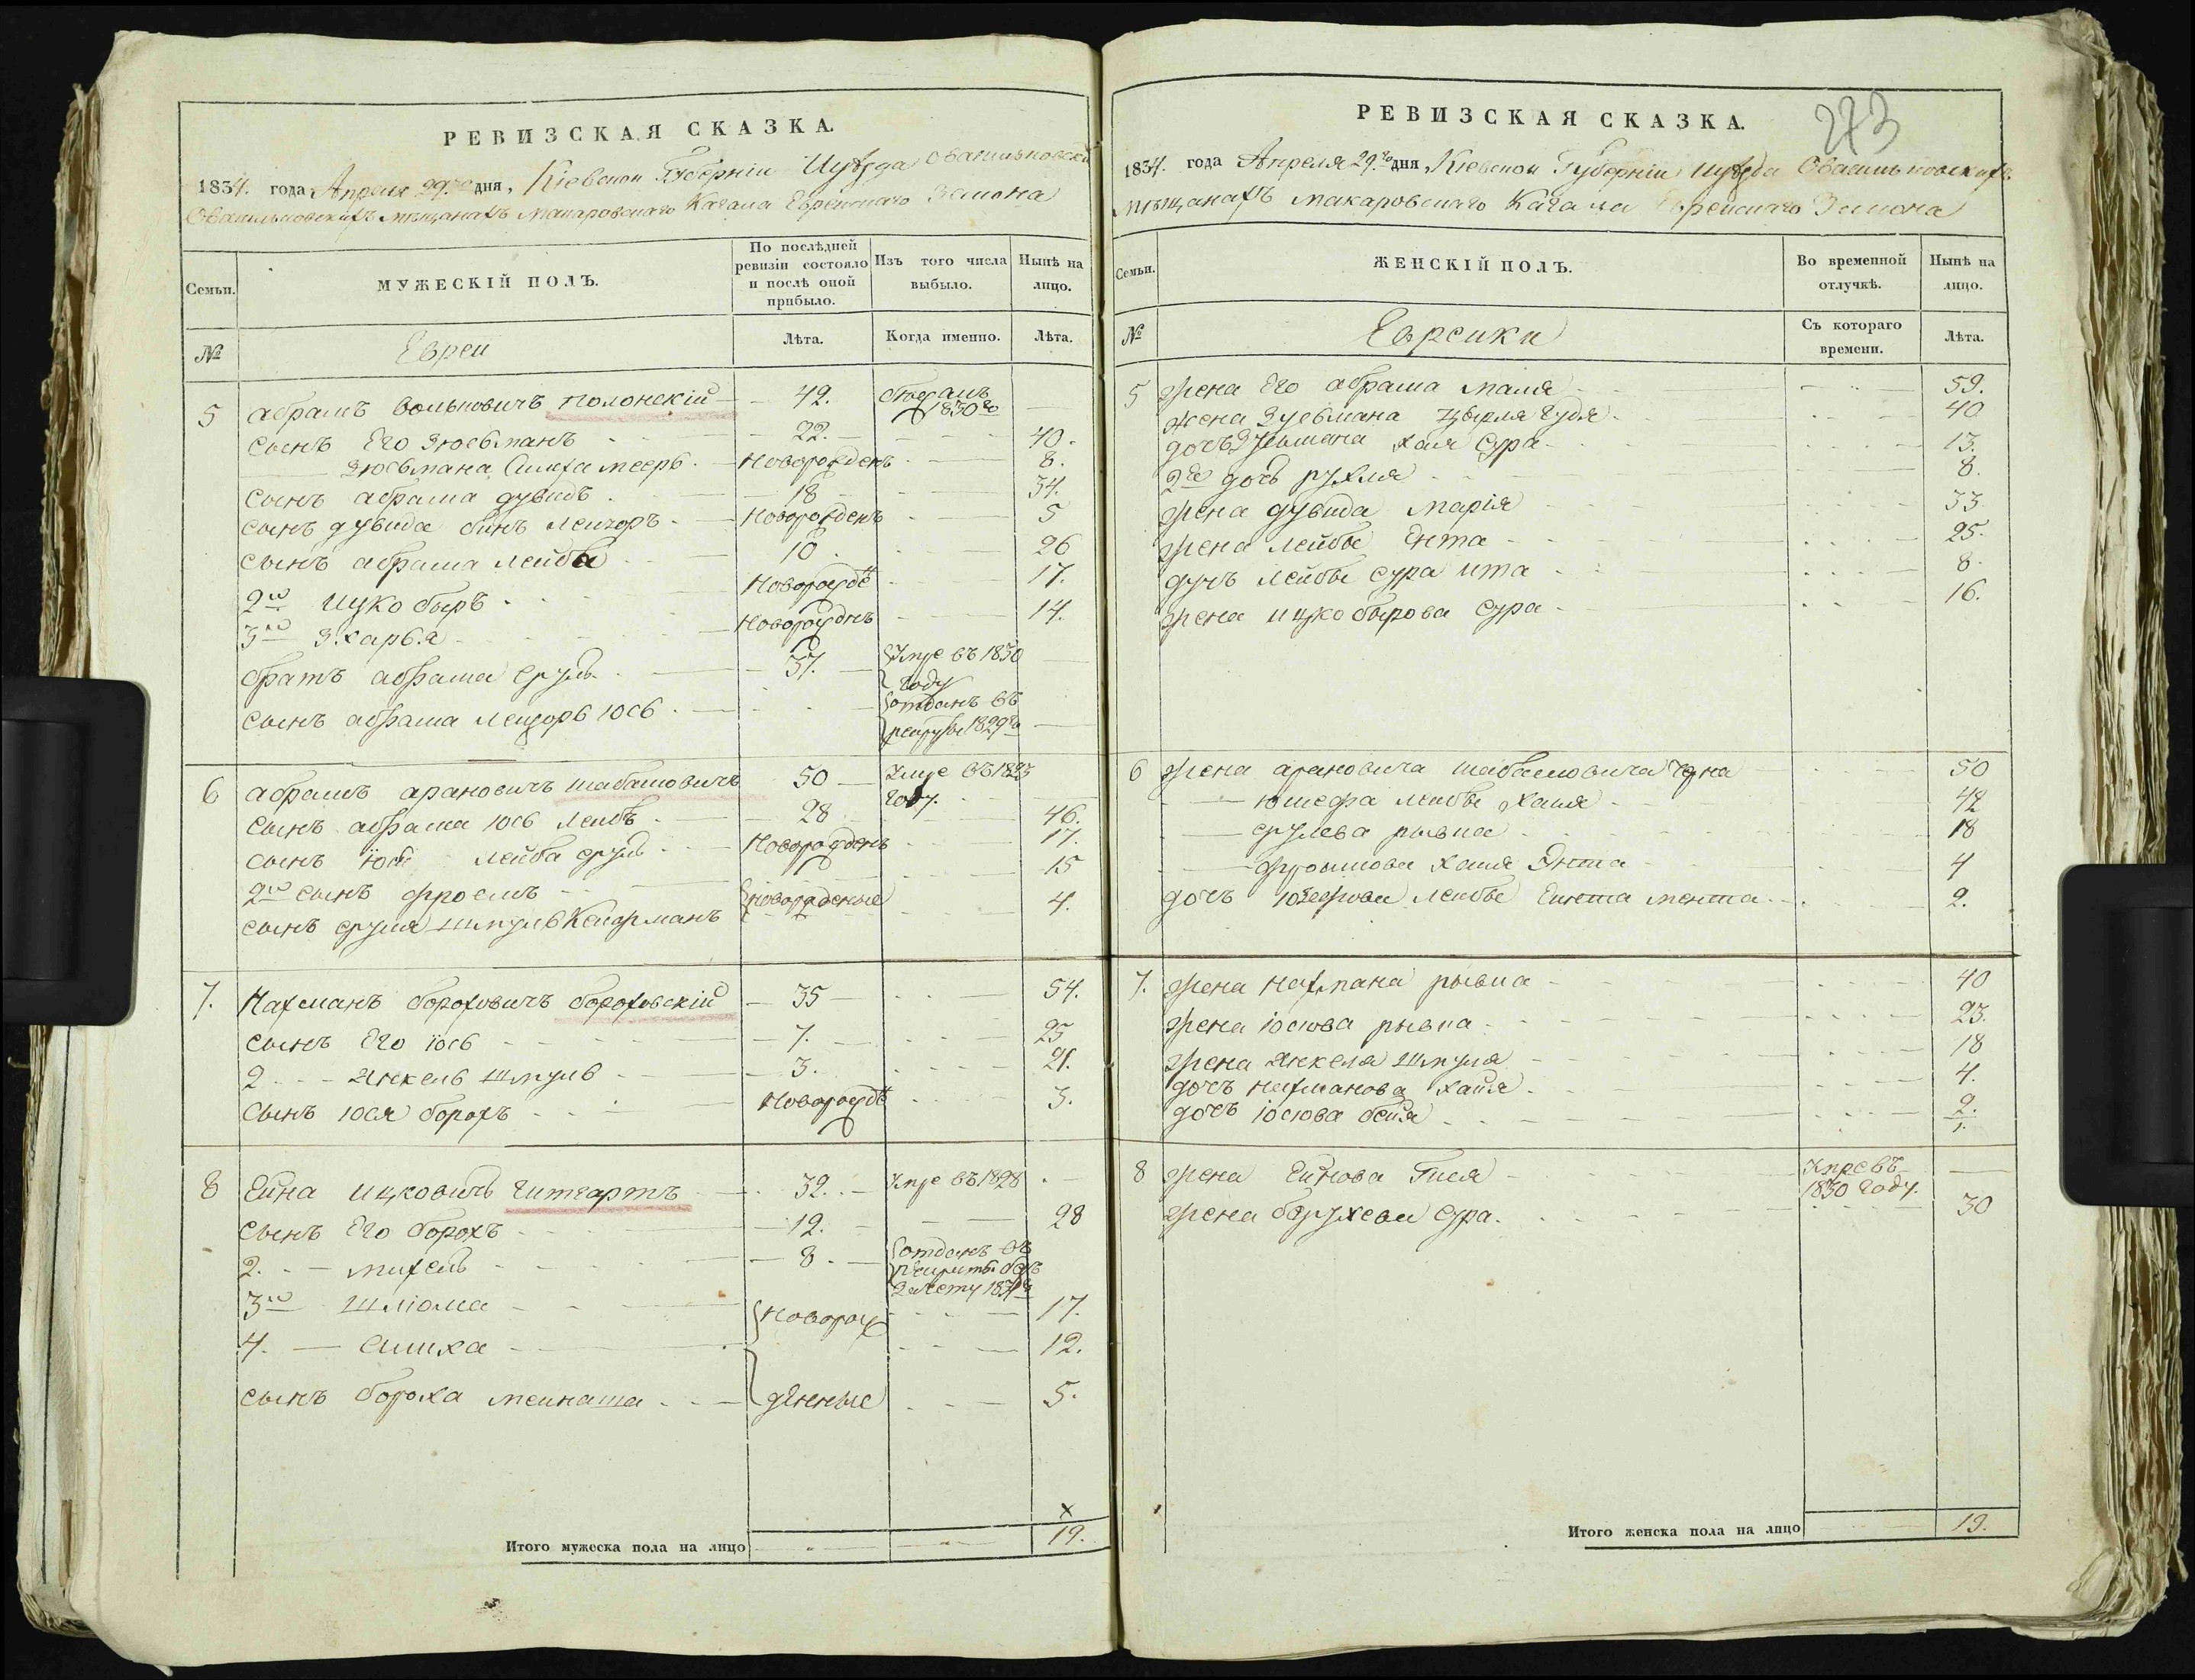 РЕВИЗСКАЯ СКАЗКА.
1834. года Апреля 29.го дня, Кіевской Губерніи Иуѣзда Овасильковски
Овасильковскихъ мѣщанахъ Макаровскаго Кагала Еврейскаго Закона
Семьи.
МУЖЕСКІЙ ПОЛЪ.
По послѣдней ревизіи состояло и послѣ оной прибыло.
Изъ того числа выбыло.
Нынѣ на лицо.
№
Евреи
Лѣта.
Когда именно.
Лѣта.
5 абрамъ вольковичъ полонскій 42. 1830го
сынъ Его Зюсьманъ 22. 40.
Зюсьмана Симха меерь Новорожденъ 8.
сынъ абрама дувидъ 18 34.
сынъ дувида Новорожденъ 5
сынъ абрама лейба 10 26
2й Ицко беръ Новорожд 17.
3й Новорожднъ 14.
братъ абрама сруль 37. Умре въ 1830 году
сынъ абрама лейзоръ юсь отданъ въ рекруты 1829го
6 абрамъ ароновичъ шабашовичъ 50 Умре въ 1823 году.
сынъ абрама юсь лейбъ 28 46.
сынъ юся лейба сруль Новорожденъ 17.
2й сынъ фроемъ 15
сынъ сруля шмуль Кейфманъ новорожденые 4.
7. Нахманъ бороховичъ бороховскій 35 54.
сынъ Его юсь 7. 25
2 Янкель шмуль 3. 21.
сынъ юся борохъ Новорожд 3.
8 Ейна ицковичъ гитгартъ 32. Умре въ 1828
сынъ Его борохъ 12. 28
2. михель 8. отданъ въ рекруты 
3й шліома Новорож 17.
4. симха 12.
сынъ бороха менаша денные 5.
Итого мужеска пола на лицо х 19.
РЕВИЗСКАЯ СКАЗКА. 273
1834. года Апреля 29.го дня, Кіевской Губерніи Иуѣзда Овасильковских
мѣщанахъ Макаровскаго Кагала Еврейскаго Закона
Семьи.
ЖЕНСКІЙ ПОЛЪ.
Во временной отлучкѣ.
Нынѣ на лицо.
№
Еврейки
Съ котораго времени.
Лѣта.
5 жена Его абрама маля 59.
жена Зусьмана цырля гудя 40
дочъ Зусьмана хая сура 13.
2я дочь рухля 8.
жена дувида марія 33
жена лейбы Ента 25.
дочъ лейбы сура ита 8.
жена ицко берова сура 16.
6 жена ароновича шабашовича 50
юшефа лейбы хаия 42
срулева рывка 18
фроимова хаия Энта 4
дочъ юзефова лейбы мента 2.
7. жена нахмана рывка 40
жена юсіова рывка 23.
жена янкеля шмуля 18
дочъ нахманова хаия 4.
дочъ юсіова бейля 2.
8 жена Ейнова Гися Умре въ 1830 году.
жена борухова сура. 30
Итого женска пола на лицо 19.